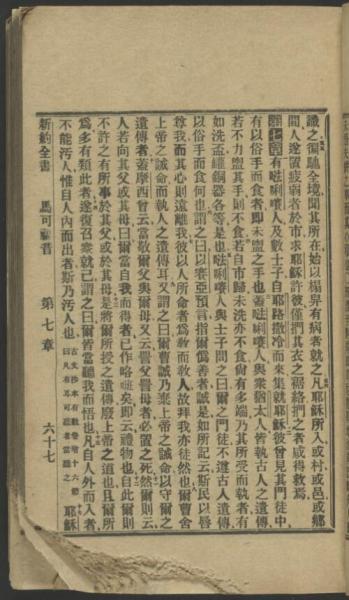 識之復馳全境聞其所在始以榻舁有病者就之凡耶穌所入或村或邑或鄉
間人遂置疲弱者於市求耶穌許彼僅捫其衣之裾綹捫之者咸得救焉
第七章有𠵽唎嚷人及數士子自耶路撒冷而來集就耶穌彼曾見其門徒中
有以俗手而食者即未盥之手也蓋𠵽唎嚷人與衆猶太人皆執古人之遺傳
若不力盥其手則不食若自市歸未洗亦不食尚有多端乃其所受而執者有
如洗盃罐銅器各等是也𠵽唎嚷人與士子問之曰爾之門徒不遵古人遺傳
以俗手而食何也謂之曰以賽亞預言指爾僞善者誠是如所記云斯民以唇
尊我而其心則遠離我彼以人所命者爲教而教人故拜我亦徒然也爾曹舍
上帝之誡命而執人之遺傳耳又謂之曰爾曹誠乃棄上帝之誡命以守爾之
遺傳者蓋摩西曾云當敬爾父與爾母又云詈父詈母者必置之死然爾則云
人若向其父或其母曰爾當自我而得者已作咯𠼻矣即云禮物也自此爾則
不許之有所事於其父或於其母是將爾所受遺傳廢上帝之道也且爾所
爲多有類此者遂復召衆就己謂之曰爾皆當聽我而悟也凡自人外而入者
不能汚人惟自人內而出者斯乃汚人也 古文抄本有數卷增十六節曰凡有耳可聽者當聽之 耶穌
新約全書 馬可福音 第七章 六十七